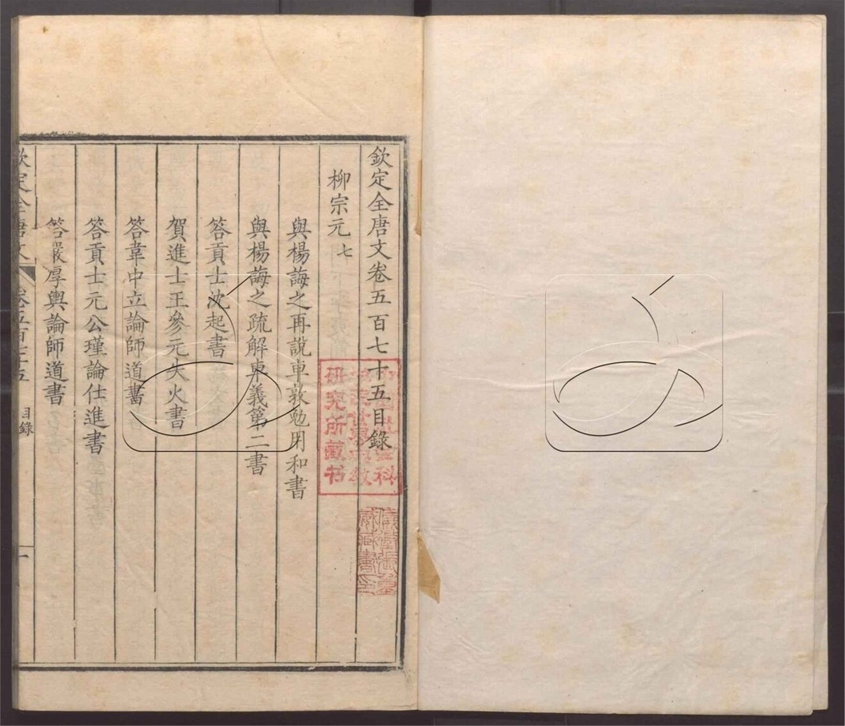 欽定全唐文卷五百七十五目錄
柳宗元七
與楊誨之再說車敦勉用和書
與楊誨之疏解車義第二書
答貢士沈起書
賀進士王參元失火書
答韋中立論師道書
答貢士元公瑾論仕進書
答嚴厚輿論師道書
欽定全唐文 卷五百七十五 目錄 一
研究所藏书